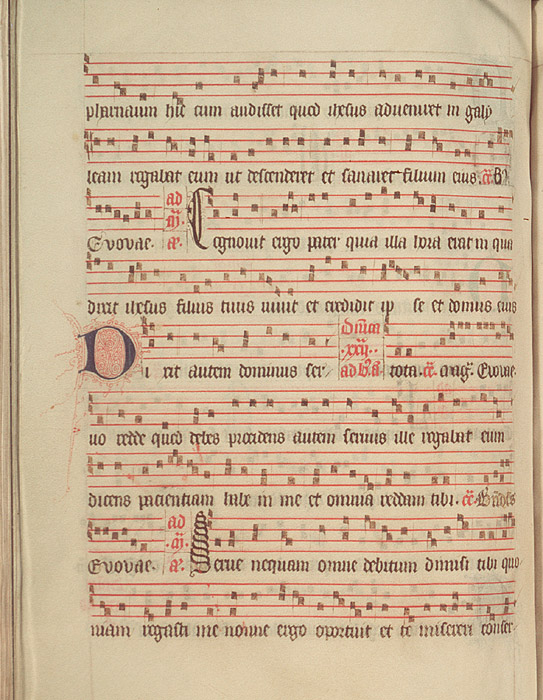 pharnaum hic cum audisset quod ihesus adveniret in galy
leam rogabat eum ut descenderet et sanaret filium eius.
Evovae. ad Cognovit ergo pater quia illa hora erat in qua
dixit ihesus filius tuus vivit et credidit ip se et domus eius
Di xit autem dominus ser/ .xxij. ad vo tota. Evovae.
vo redde quod debes procidens autem servus ille rogabat eum
dicens pacientiam habe in me et omnia reddam tibi.
Evovae. ad Serve nequam omne debitum dimisi tibi quo
niam rogasti me nonne ergo oportuit et te misereri conser/